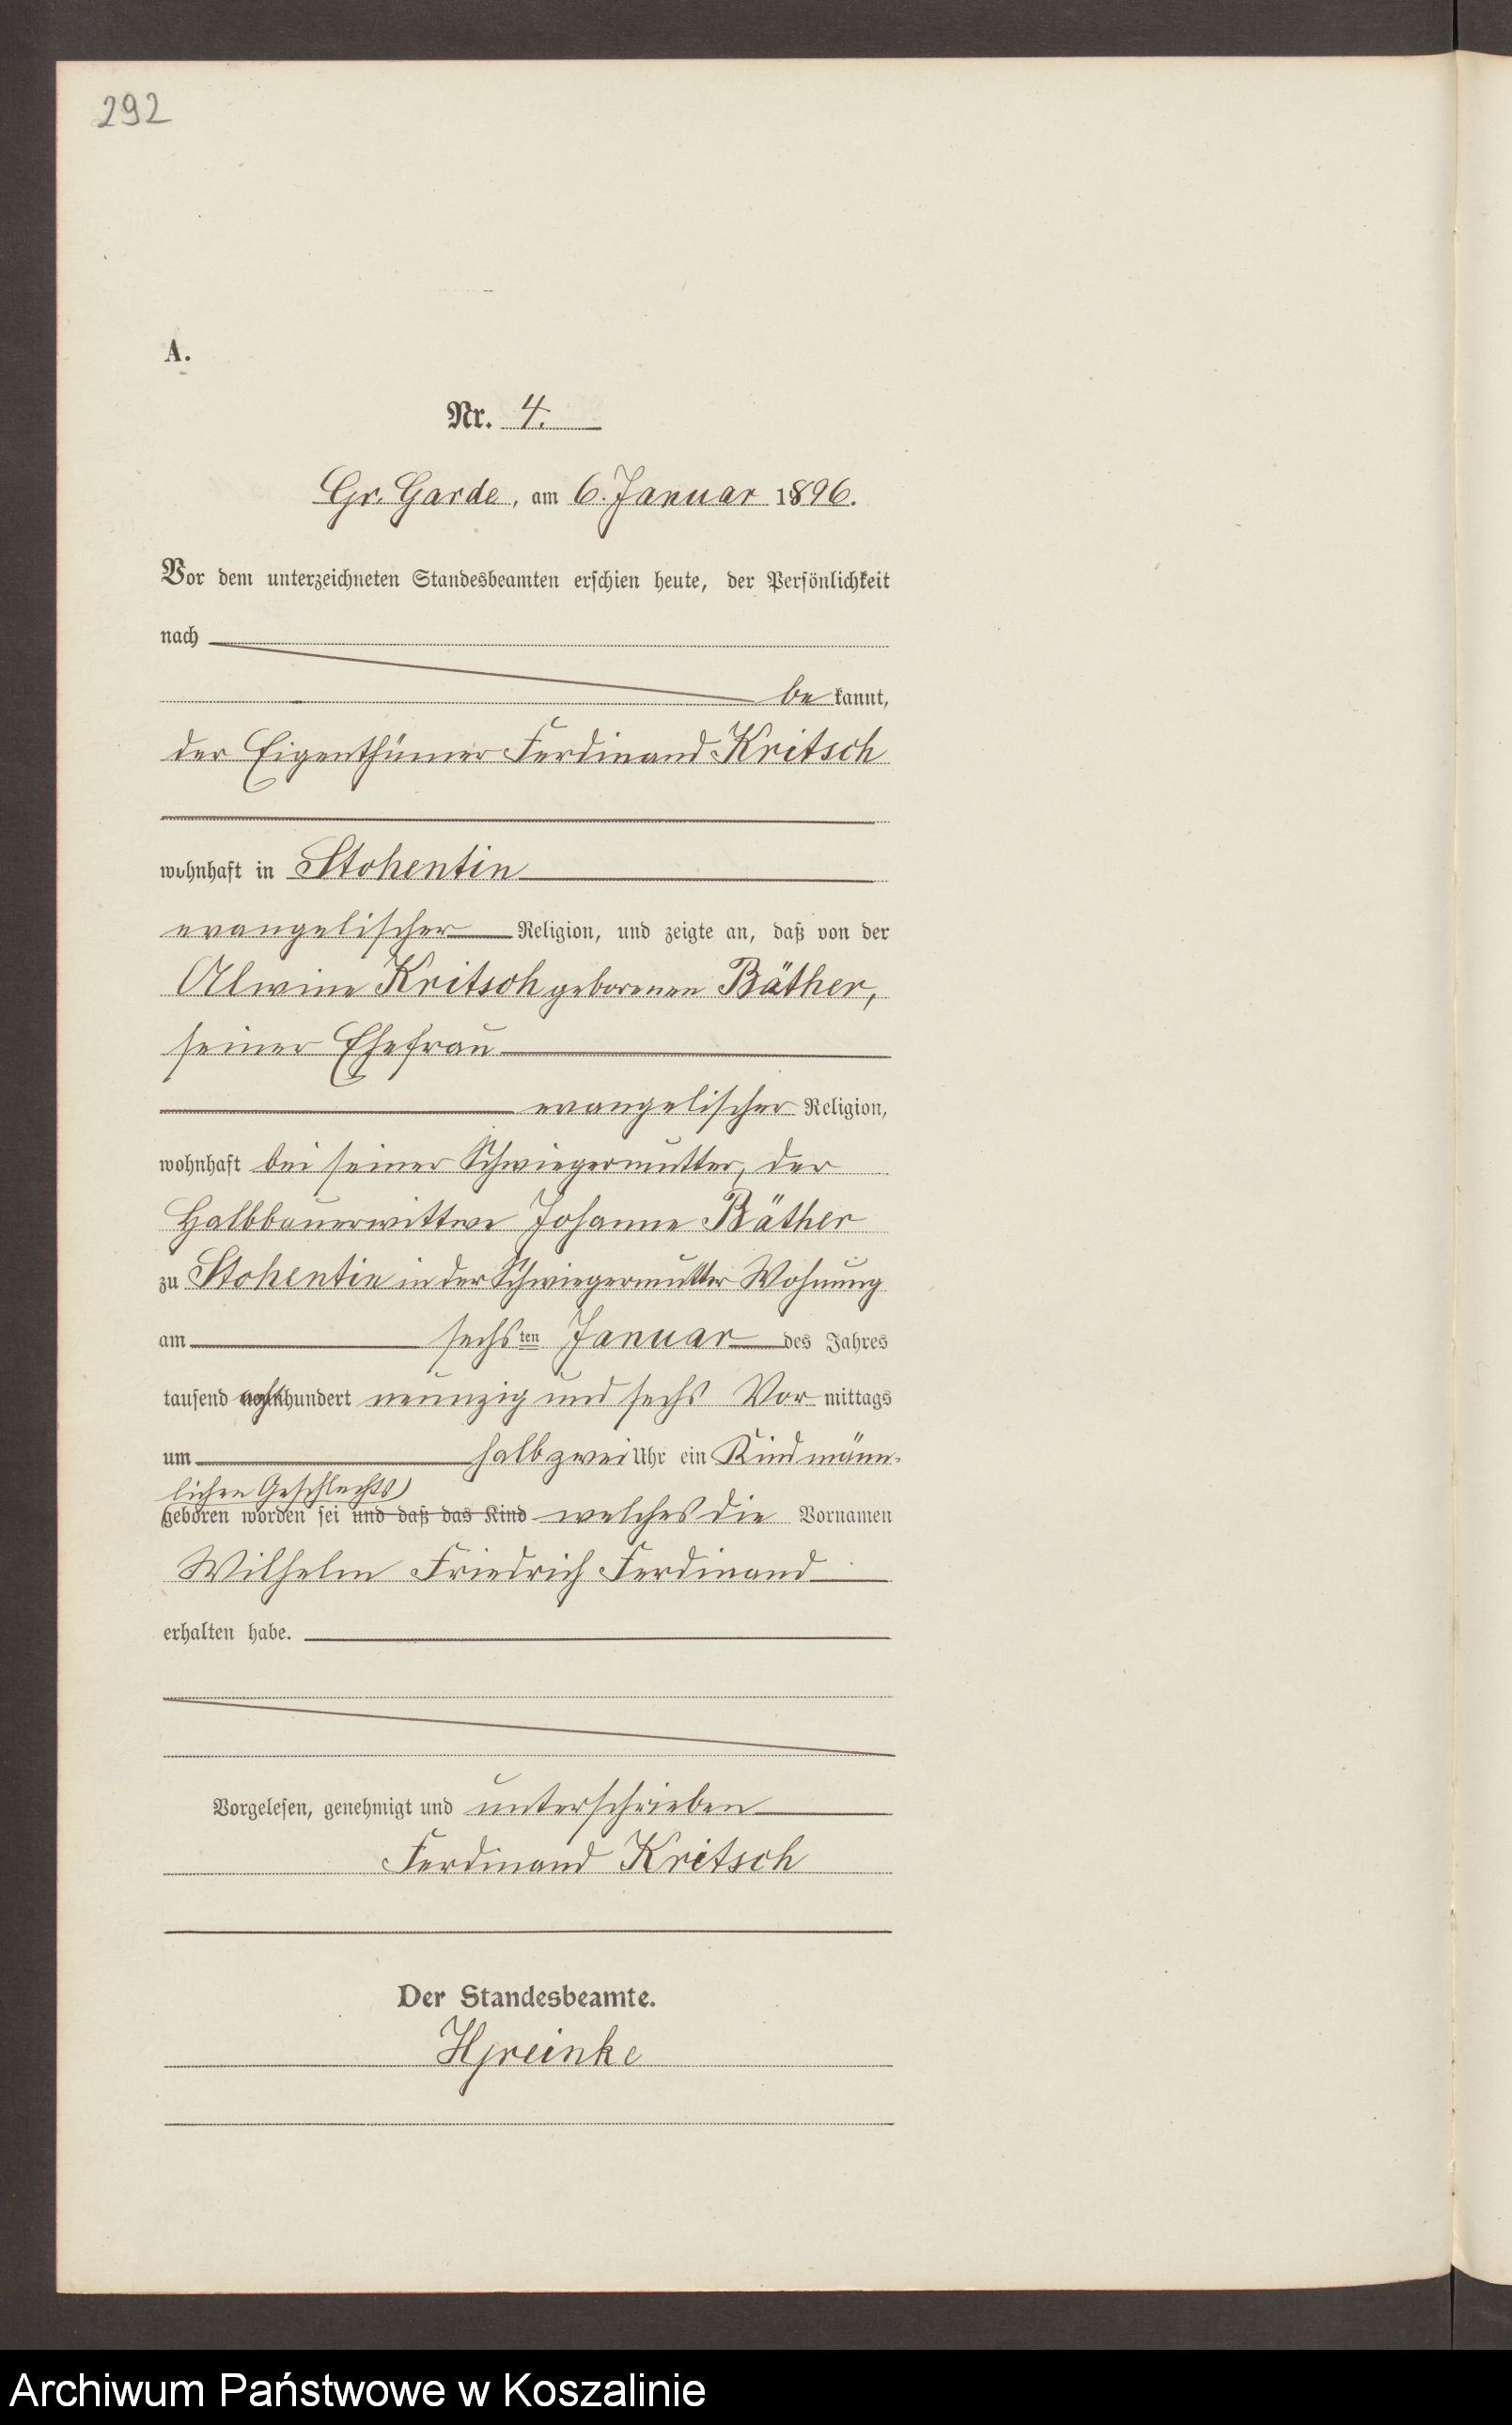 292
A.
Nr. 4.
Gr. Garde, am 6. Januar 1896.
Vor dem unterzeichneten Standesbeamten erschien heute, der Persönlichkeit
nach
be kannt,
der Eigenthümer Ferdinand Kritsch
wohnhaft in Stohentin
evangelischer Religion, und zeigte an, daß von der
Alwine Kritsch geborenen Bäther,
seiner Ehefrau
evangelischer Religion,
wohnhaft bei seiner Schwiegermutter, der
Halbbauerwittwe Johanne Bäther
zu Stohentin in der Schwiegermutter Wohnung
am sechsten Januar des Jahres
tausend achthundert neunzig und sechs Vor mittags
um halb zwei Uhr ein Kind männ-
lichen Geschlechts
geboren worden sei und daß das Kind welches die Vornamen
Wilhelm Friedrich Ferdinand
erhalten habe.
Vorgelesen, genehmigt und unterschrieben
Ferdinand Kritsch
Der Standesbeamte.
Archiwum Państwowe w Koszalinie